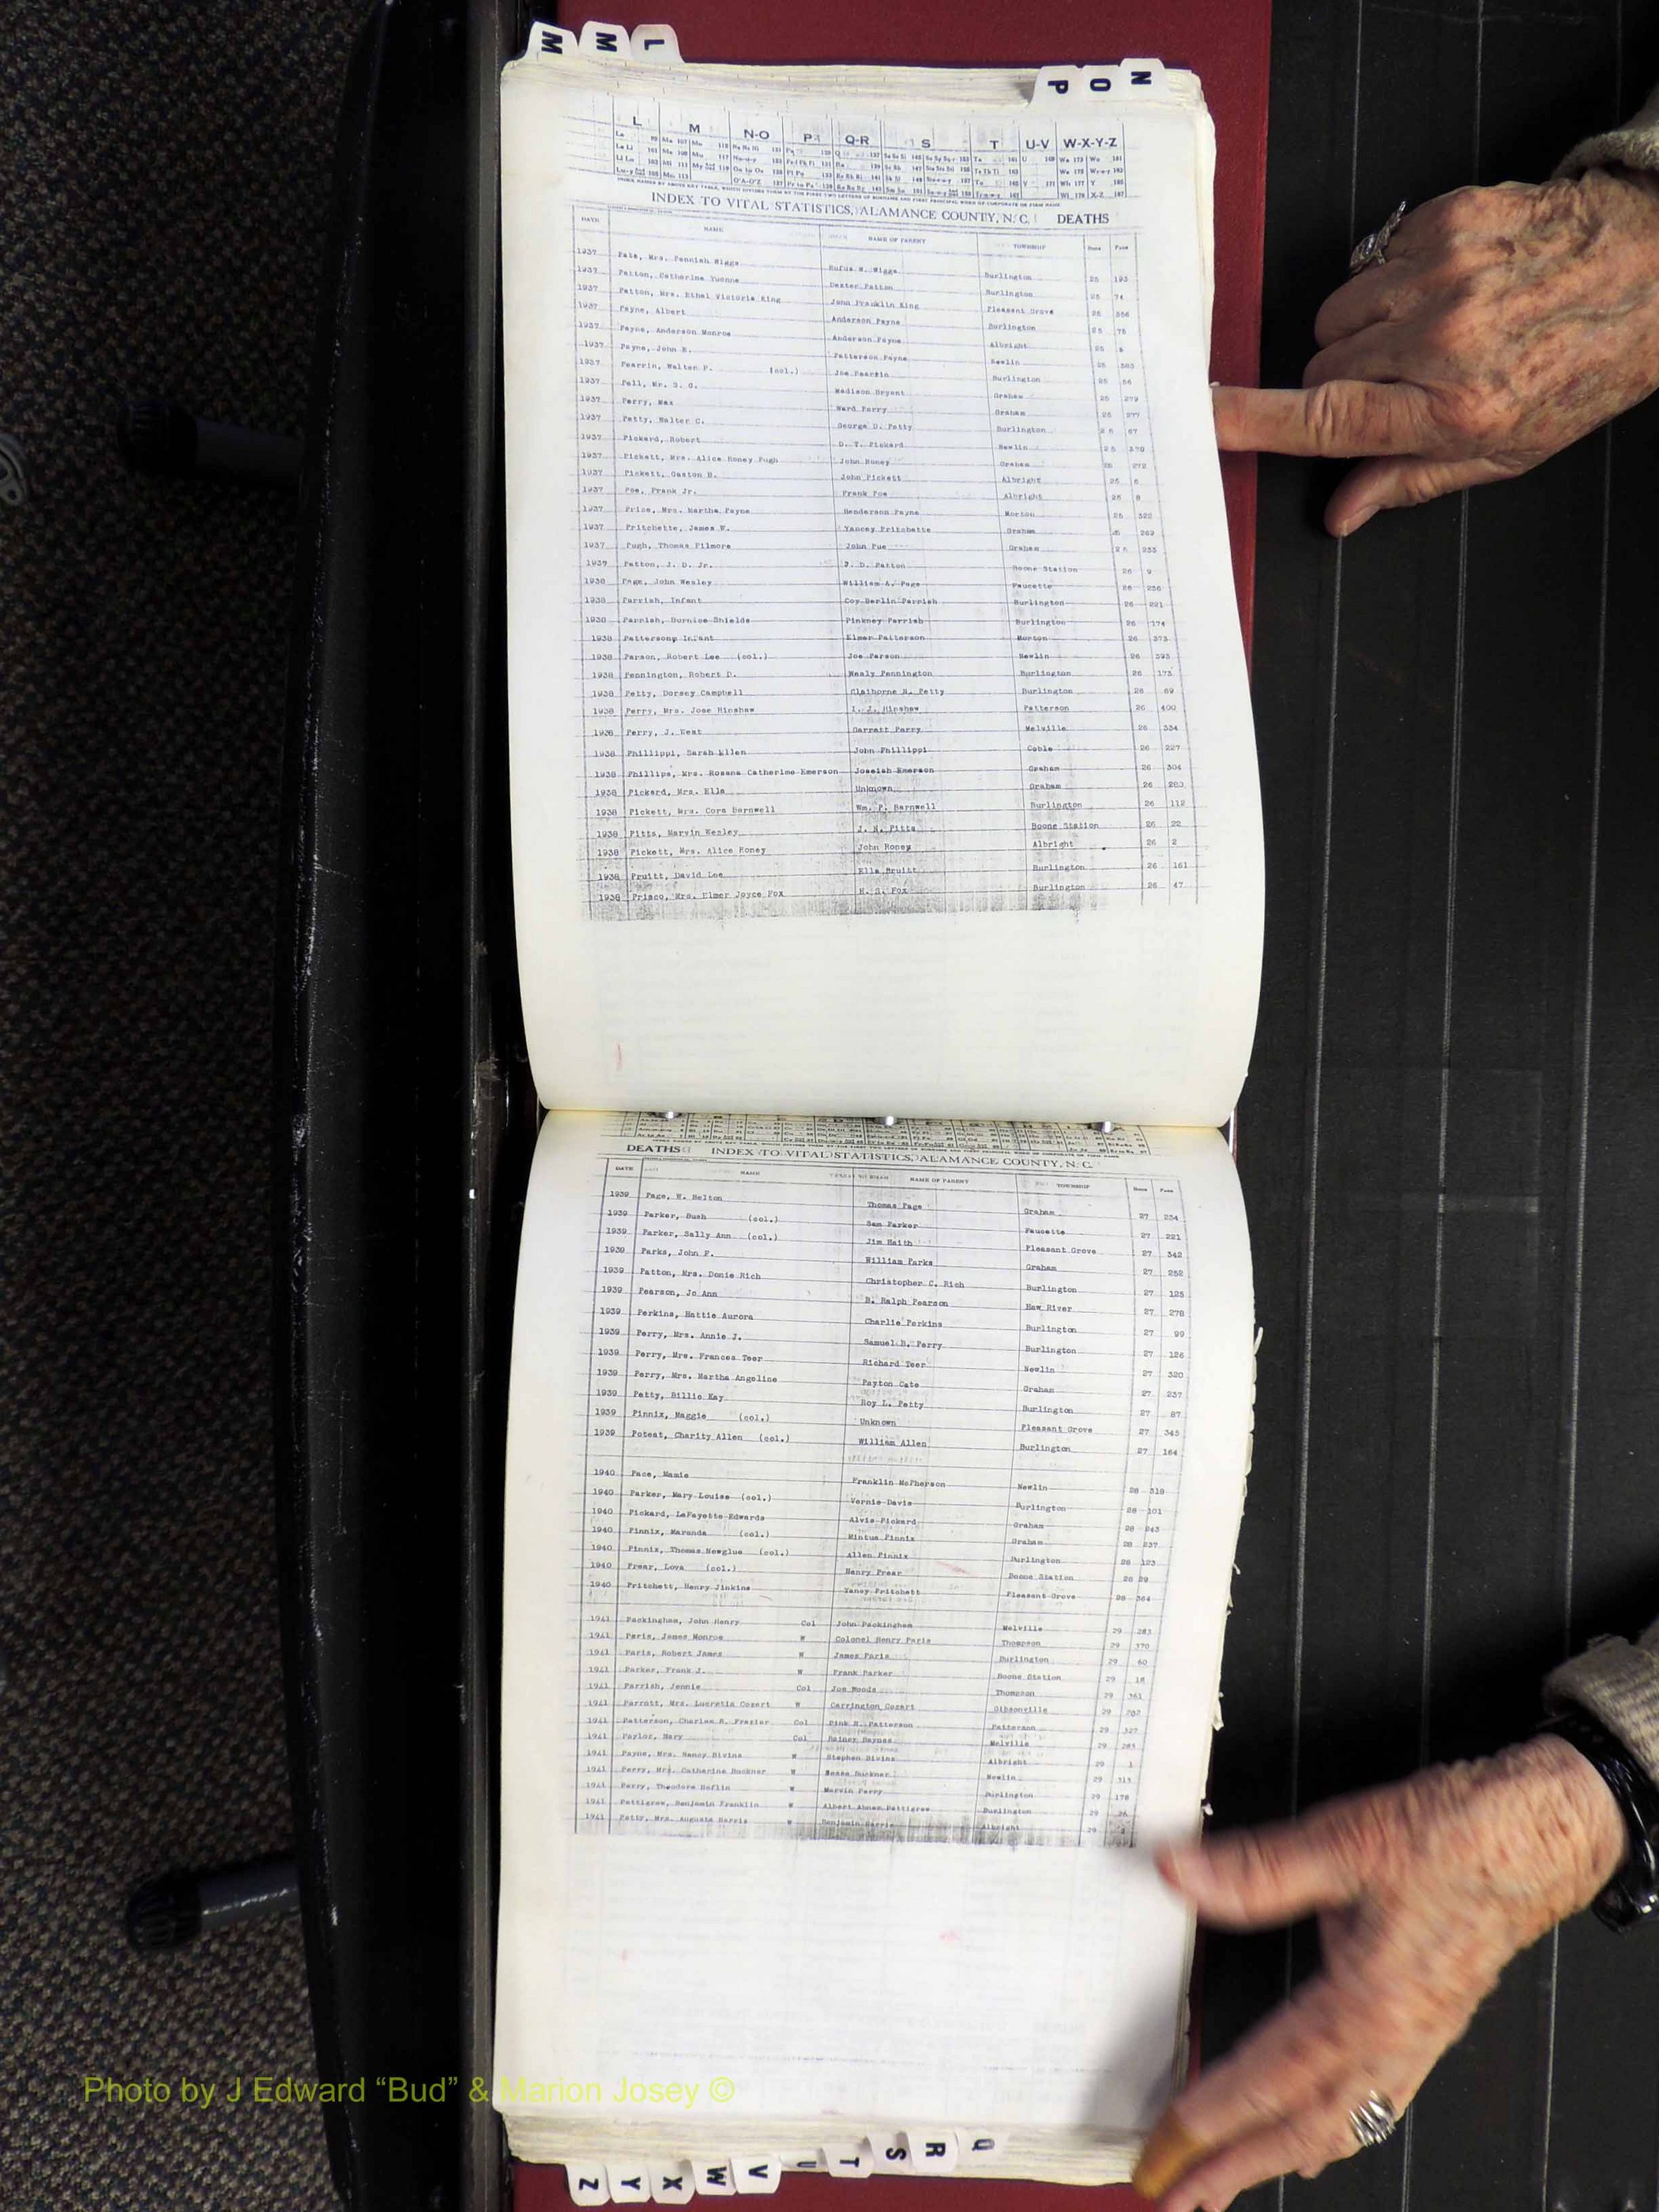 M M L
P O N
L M N-O P Q-R S T U-V W-X-Y-Z
INDEX TO VITAL STATISTICS, ALAMANCE COUNTY, N. C. DEATHS
DATE NAME NAME OF PARENT TOWNSHIP Book Page
1937 Pate, Mrs. Penniah Wiggs Rufus W. Wiggs Burlington 25 193
1937 Patton, Catherine Yvonne Dexter Patton Burlington 25 74
1937 Patton, Mrs. Ethel Victoria King John Franklin King Pleasant Grove 25 356
1937 Payne, Albert Anderson Payne Burlington 25 75
1937 Payne, Anderson Monroe Anderson Payne Albright 25
1937 Payne, John E. Patterson Payne Newlin 25 383
1937 Pearrin, Walter P. (col.) Joe Pearrin Burlington 25 56
1937 Pell, Mr. S. G. Madison Bryant Graham 25 279
1937 Perry, Max Ward Perry Graham 25 277
1937 Petty, Walter C. George D. Petty Burlington 25 67
1937 Pickard, Robert D. T. Pickard Newlin 25 370
1937 Pickett, Mrs. Alice Roney Pugh John Roney Graham 25 272
1937 Pickett, Gaston B. John Pickett Albright 25 6
1937 Poe, Frank Jr. Frank Poe Albright 25 8
1937 Price, Mrs. Martha Payne Henderson Payne Morton 25 322
1937 Pritchette, James W. Yancey Pritchette Graham 25 269
1937 Pugh, Thomas Filmore John Pue Graham 25 255
1937 Patton, J. D. Jr. J. D. Patton Boone Station 26 9
1938 Page, John Wesley William A. Page Faucette 26 256
1938 Parrish, Infant Coy Berlin Parrish Burlington 26 221
1938 Parrish, Burnice Shields Pinkney Parrish Burlington 26 174
1938 Patterson, Infant Elmer Patterson Morton 26 373
1938 Parson, Robert Lee (col.) Joe Parson Newlin 26 393
1938 Pennington, Robert D. Wesly Pennington Burlington 26 173
1938 Petty, Dorsey Campbell Claiborne N. Petty Burlington 26 69
1938 Perry, Mrs. Jose Hinshaw I. J. Hinshaw Patterson 26 400
1938 Perry, J. West Garrett Perry Melville 26 334
1938 Phillippi, Sarah Ellen John Phillippi Coble 26 227
1938 Phillips, Mrs. Rosana Catherine Emerson Joseiah Emerson Graham 26 304
1938 Pickard, Mrs. Ella Unknown Graham 26 283
1938 Pickett, Mrs. Cora Barnwell Wm. P. Barnwell Burlington 26 112
1938 Pitts, Marvin Wesley J. H. Pitts Boone Station 26 22
1938 Pickett, Mrs. Alice Roney John Roney Albright 26 2
1938 Pruitt, David Lee Ella Pruitt Burlington 26 161
1938 Prisco, Mrs. Elmer Joyce Fox H. S. Fox Burlington 26 47
DEATHS INDEX TO VITAL STATISTICS, ALAMANCE COUNTY, N. C.
DATE NAME NAME OF PARENT TOWNSHIP Book Page
1939 Page, W. Helton Thomas Page Graham 27 234
1939 Parker, Bush (col.) Sam Parker Faucette 27 221
1939 Parker, Sally Ann (col.) Jim Haith Pleasant Grove 27 342
1939 Parks, John F. William Parks Graham 27 252
1939 Patton, Mrs. Donie Rich Christopher C. Rich Burlington 27 125
1939 Pearson, Jo Ann B. Ralph Pearson Haw River 27 278
1939 Perkins, Hattie Aurora Charlie Perkins Burlington 27 99
1939 Perry, Mrs. Annie J. Samuel B. Perry Burlington 27 126
1939 Perry, Mrs. Frances Teer Richard Teer Newlin 27 320
1939 Perry, Mrs. Martha Angeline Payton Cate Graham 27 237
1939 Petty, Billie Kay Roy L. Petty Burlington 27 87
1939 Pinnix, Maggie (col.) Unknown Pleasant Grove 27 345
1939 Poteat, Charity Allen (col.) William Allen Burlington 27 164
1940 Pace, Mamie Franklin McPherson Newlin 28 318
1940 Parker, Mary Louise (col.) Vernie Davis Burlington 28 101
1940 Pickard, LaFayette Edwards Alvis Pickard Graham 28 243
1940 Pinnix, Maranda (col.) Mintus Pinnix Graham 28 237
1940 Pinnix, Thomas Newglue (col.) Allen Pinnix Burlington 28 123
1940 Prear, Lova (col.) Henry Prear Boone Station 28 29
1940 Pritchett, Henry Jinkins Yancy Pritchett Pleasant Grove 28 364
1941 Packingham, John Henry Col John Packingham Melville 29 283
1941 Paris, James Monroe W Colonel Henry Paris Thompson 29 370
1941 Paris, Robert James W James Paris Burlington 29 60
1941 Parker, Frank J. W Frank Parker Boone Station 29 18
1941 Parrish, Jennie Col Joe Woods Thompson 29 361
1941 Parrott, Mrs. Lucretia Cozart W Carrington Cozart Gibsonville 29 262
1941 Patterson, Charles R. Frazier Col Pink H. Patterson Patterson 29 327
1941 Paylor, Mary Col Rainey Haynes Melville 29 285
1941 Payne, Mrs. Nancy Bivins W Stephen Bivins Albright 29 1
1941 Perry, Mrs. Catherine Buckner W Buckner Newlin 29 313
1941 Perry, Theodore Heflin W Marvin Perry Burlington 29 178
1941 Pettigrew, Benjamin Franklin W Albert Abner Pettigrew Burlington 29 26
1941 Petty, Mrs. Augusta Harris W Benjamin Harris Albright 29
Photo by J Edward “Bud” & Marion Josey ©
Z Y X W V U T S R Q